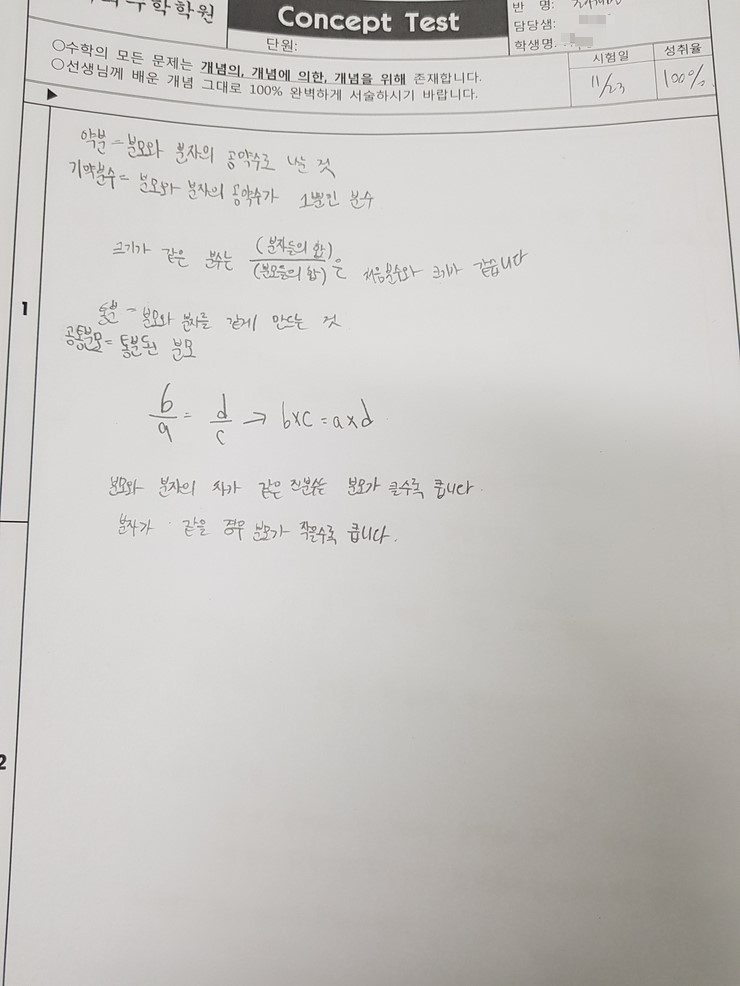 수학학원
Concept Test
단원:
반 명:
담당샘:
학생명.
○수학의 모든 문제는 개념의, 개념에 의한, 개념을 위해 존재합니다.
○선생님께 배운 개념 그대로 100% 완벽하게 서술하시기 바랍니다.
시험일 성취율
11/23 100%
▶
1
약분 = 분모와 분자의 공약수로 나눈 것
기약분수 = 분모와 분자의 공약수가 1뿐인 분수
크기가 같은 분수는 (분자들의 합)/(분모들의 합)은 처음분수와 크기가 같습니다
통분 = 분모와 분자를 같게 만드는 것
공통분모 = 통분된 분모
b/a = d/c → b×c = a×d
분모와 분자의 차가 같은 진분수는 분모가 클수록 큽니다.
분자가 같을 경우 분모가 작을수록 큽니다.
2